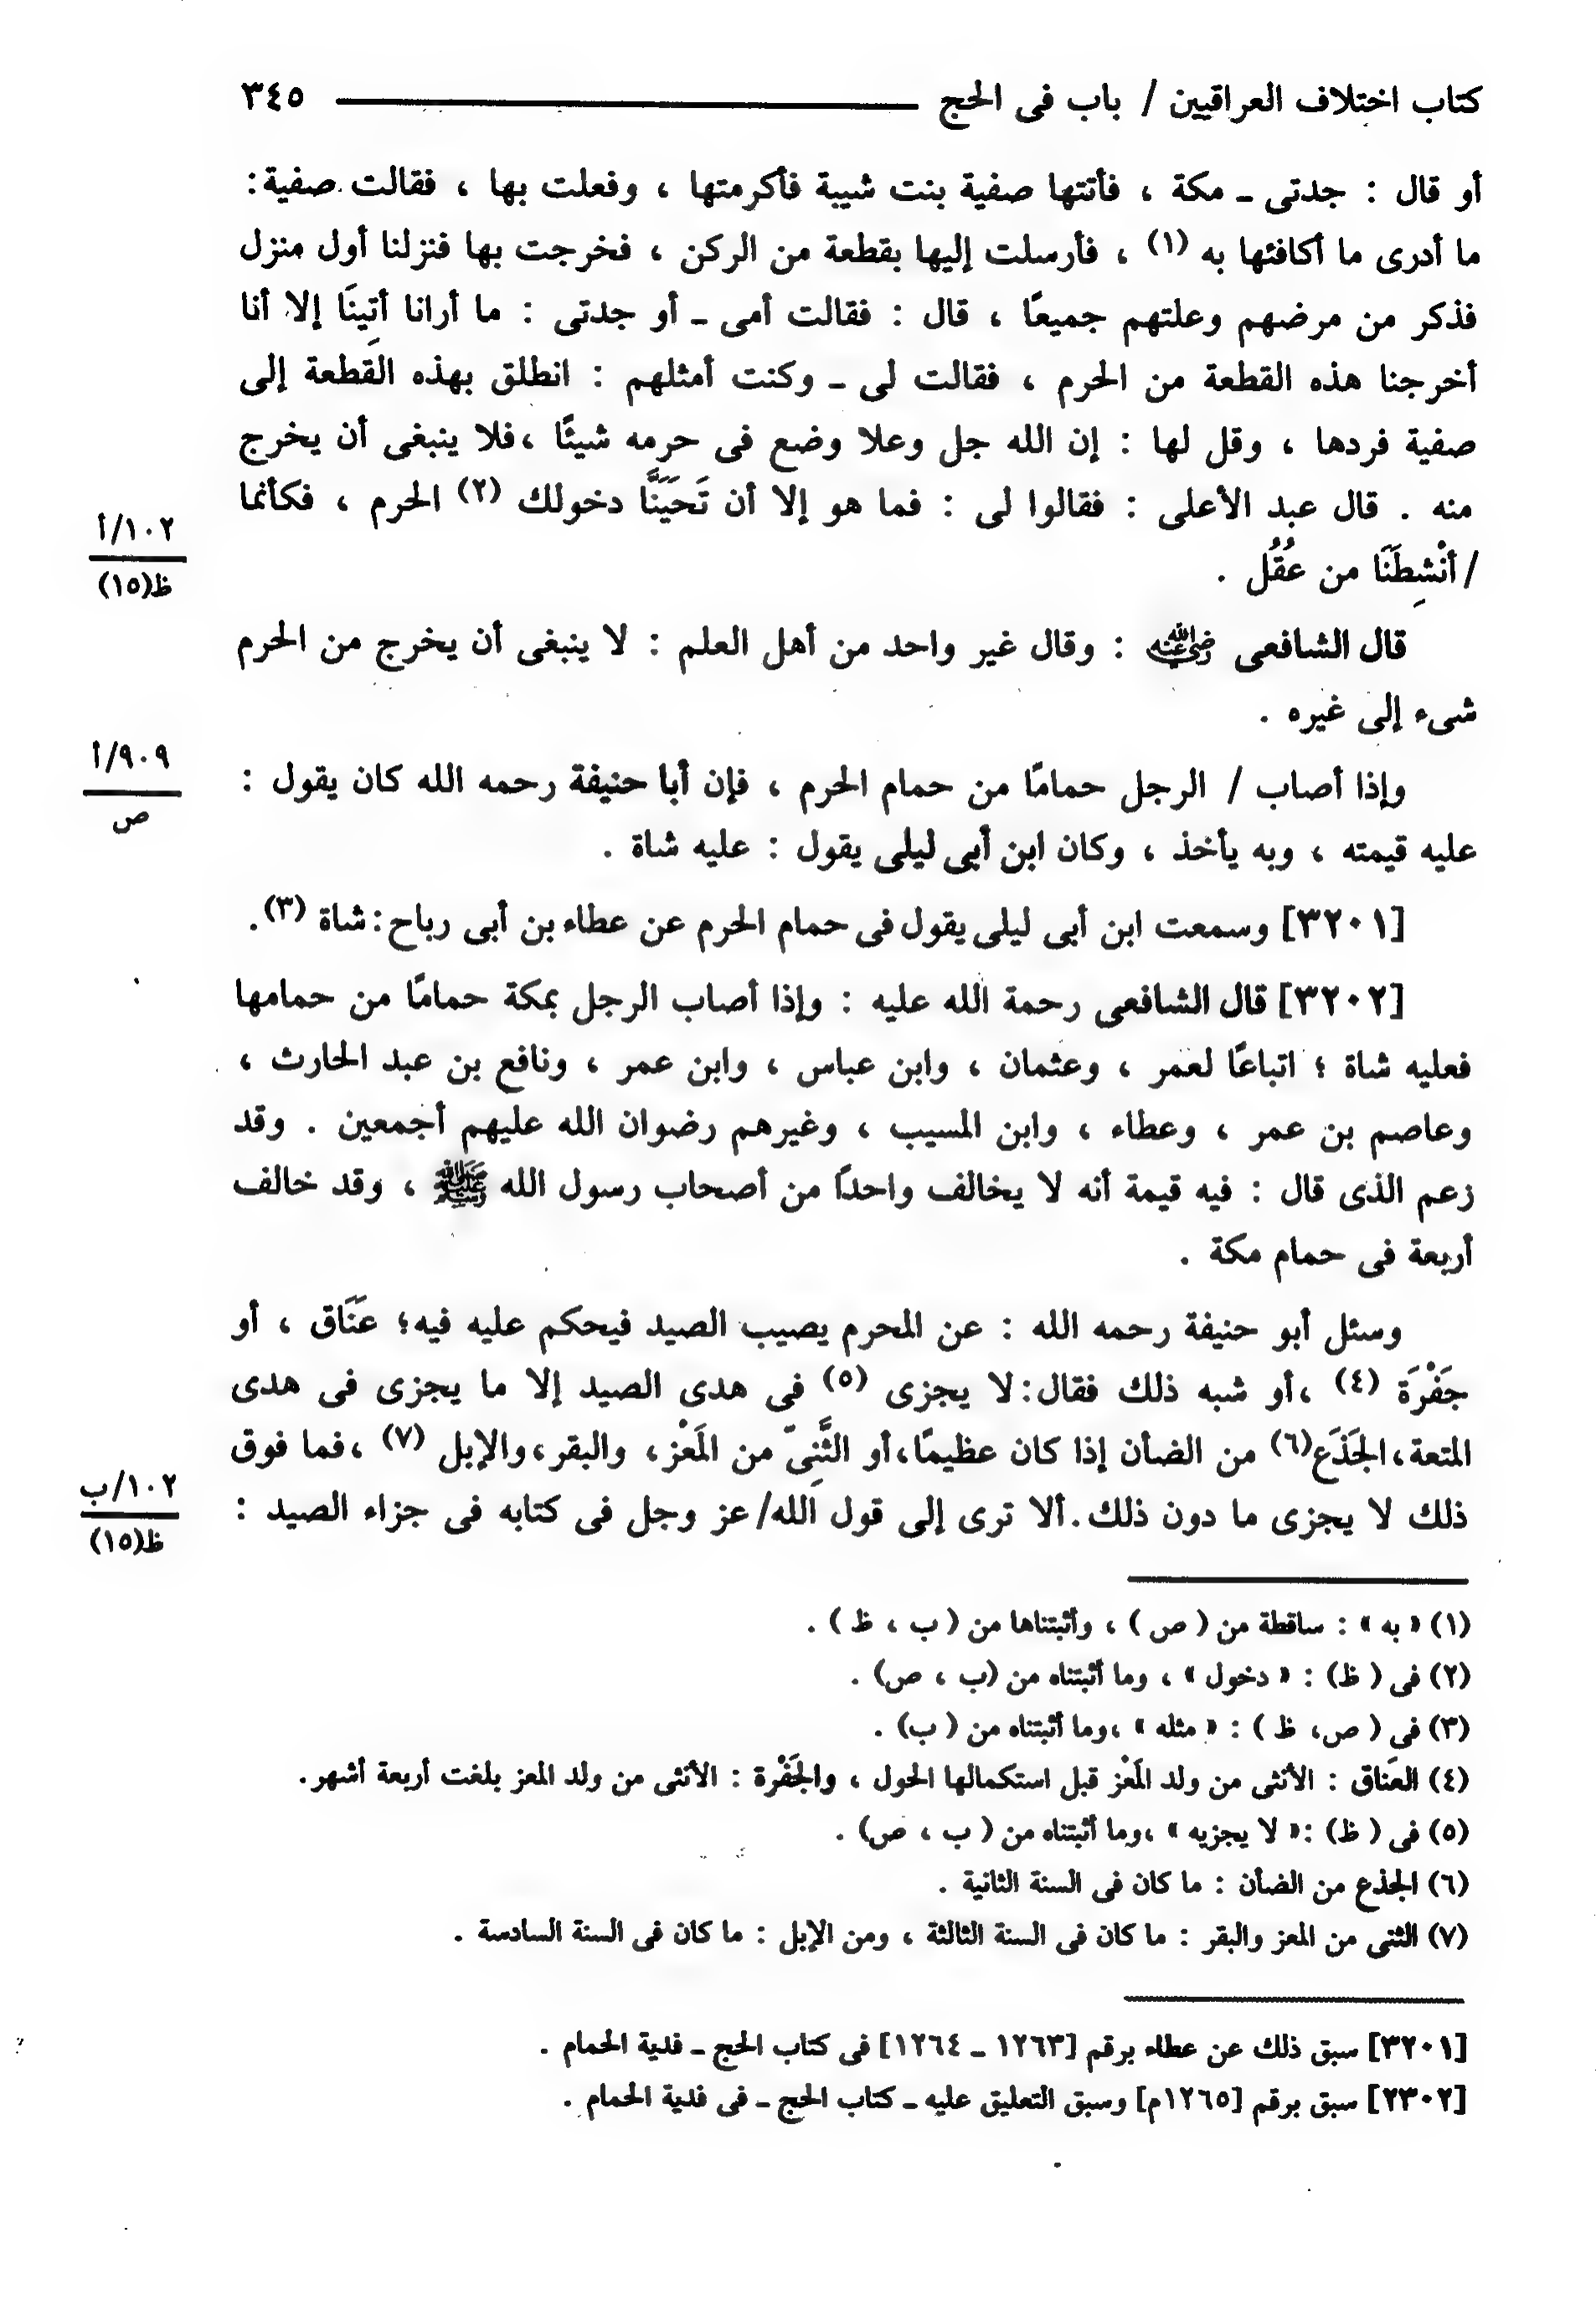 كتاب اختلاف العراقيين / باب فى الحج ٣٤٥
أو قال : جدتى ـ مكة ، فأتتها صفية بنت شيبة فأكرمتها ، وفعلت بها ، فقالت صفية:
ما أدرى ما أكافئها به (١) ، فأرسلت إليها بقطعة من الركن ، فخرجت بها فنزلنا أول منزل
فذكر من مرضهم وعلتهم جميعًا ، قال : فقالت أمى ـ أو جدتى : ما أرانا أتِينَا إلا أنا
أخرجنا هذه القطعة من الحرم ، فقالت لى ـ وكنت أمثلهم : انطلق بهذه القطعة إلى
صفية فردها ، وقل لها : إن الله جل وعلا وضع فى حرمه شيئًا ،فلا ينبغى أن يخرج
منه . قال عبد الأعلى : فقالوا لى : فما هو إلا أن تَحَيَنَّا دخولك (٢) الحرم ، فكأنما
١٠٢/أ
ظ(١٥)
/ أنْشِطَنَا من عُقُل .
قال الشافعى رضي الله عنه : وقال غير واحد من أهل العلم : لا ينبغى أن يخرج من الحرم
شىء إلى غيره .
٩٠٩/أ
ص
وإذا أصاب / الرجل حمامًا من حمام الحرم ، فإن أبا حنيفة رحمه الله كان يقول :
عليه قيمته ، وبه يأخذ ، وكان ابن أبى ليلى يقول : عليه شاة .
[٣٢٠١] وسمعت ابن أبى ليلى يقول فى حمام الحرم عن عطاء بن أبى رباح: شاة (٣).
[٣٢٠٢] قال الشافعى رحمة الله عليه : وإذا أصاب الرجل بمكة حمامًا من حمامها
فعليه شاة ؛ اتباعًا لعمر ، وعثمان ، وابن عباس ، وابن عمر ، ونافع بن عبد الحارث ،
وعاصم بن عمر ، وعطاء ، وابن المسيب ، وغيرهم رضوان الله عليهم أجمعين . وقد
زعم الذى قال : فيه قيمة أنه لا يخالف واحدًا من أصحاب رسول الله ﷺ ، وقد خالف
أربعة فى حمام مكة .
وسئل أبو حنيفة رحمه الله : عن المحرم يصيب الصيد فيحكم عليه فيه؛ عَنَاق ، أو
جَفْرَة (٤) ،أو شبه ذلك فقال: لا يجزى (٥) فى هدى الصيد إلا ما يجزى فى هدى
المتعة،الجَذَع(٦) من الضأن إذا كان عظيمًا،أو الثَّنِىّ من المَعْز، والبقر،والإبل (٧) ،فما فوق
ذلك لا يجزى ما دون ذلك. ألا ترى إلى قول الله/ عز وجل فى كتابه فى جزاء الصيد :
١٠٢/ب
ظ(١٥)
(١) « به » : ساقطة من ( ص ) ، وأثبتناها من ( ب ، ظ ) .
(٢) فى ( ظ) : « دخول » ، وما أثبتناه من (ب ، ص) .
(٣) فى ( ص، ظ ) : « مثله » ،وما أثبتناه من ( ب) .
(٤) العَناق : الأنثى من ولد المَعْز قبل استكمالها الحول ، والجَفْرة : الأنثى من ولد المعز بلغت أربعة أشهر.
(٥) فى ( ظ) :« لا يجزيه » ،وما أثبتناه من ( ب ، ص) .
(٦) الجذع من الضأن : ما كان فى السنة الثانية .
(٧) الثنى من المعز والبقر : ما كان فى السنة الثالثة ، ومن الإبل : ما كان فى السنة السادسة .
[٣٢٠١] سبق ذلك عن عطاء برقم [١٢٦٣ ـ ١٢٦٤] فى كتاب الحج ـ فدية الحمام .
[٢٣٠٢] سبق برقم [١٢٦٥م] وسبق التعليق عليه ـ كتاب الحج ـ فى فدية الحمام .